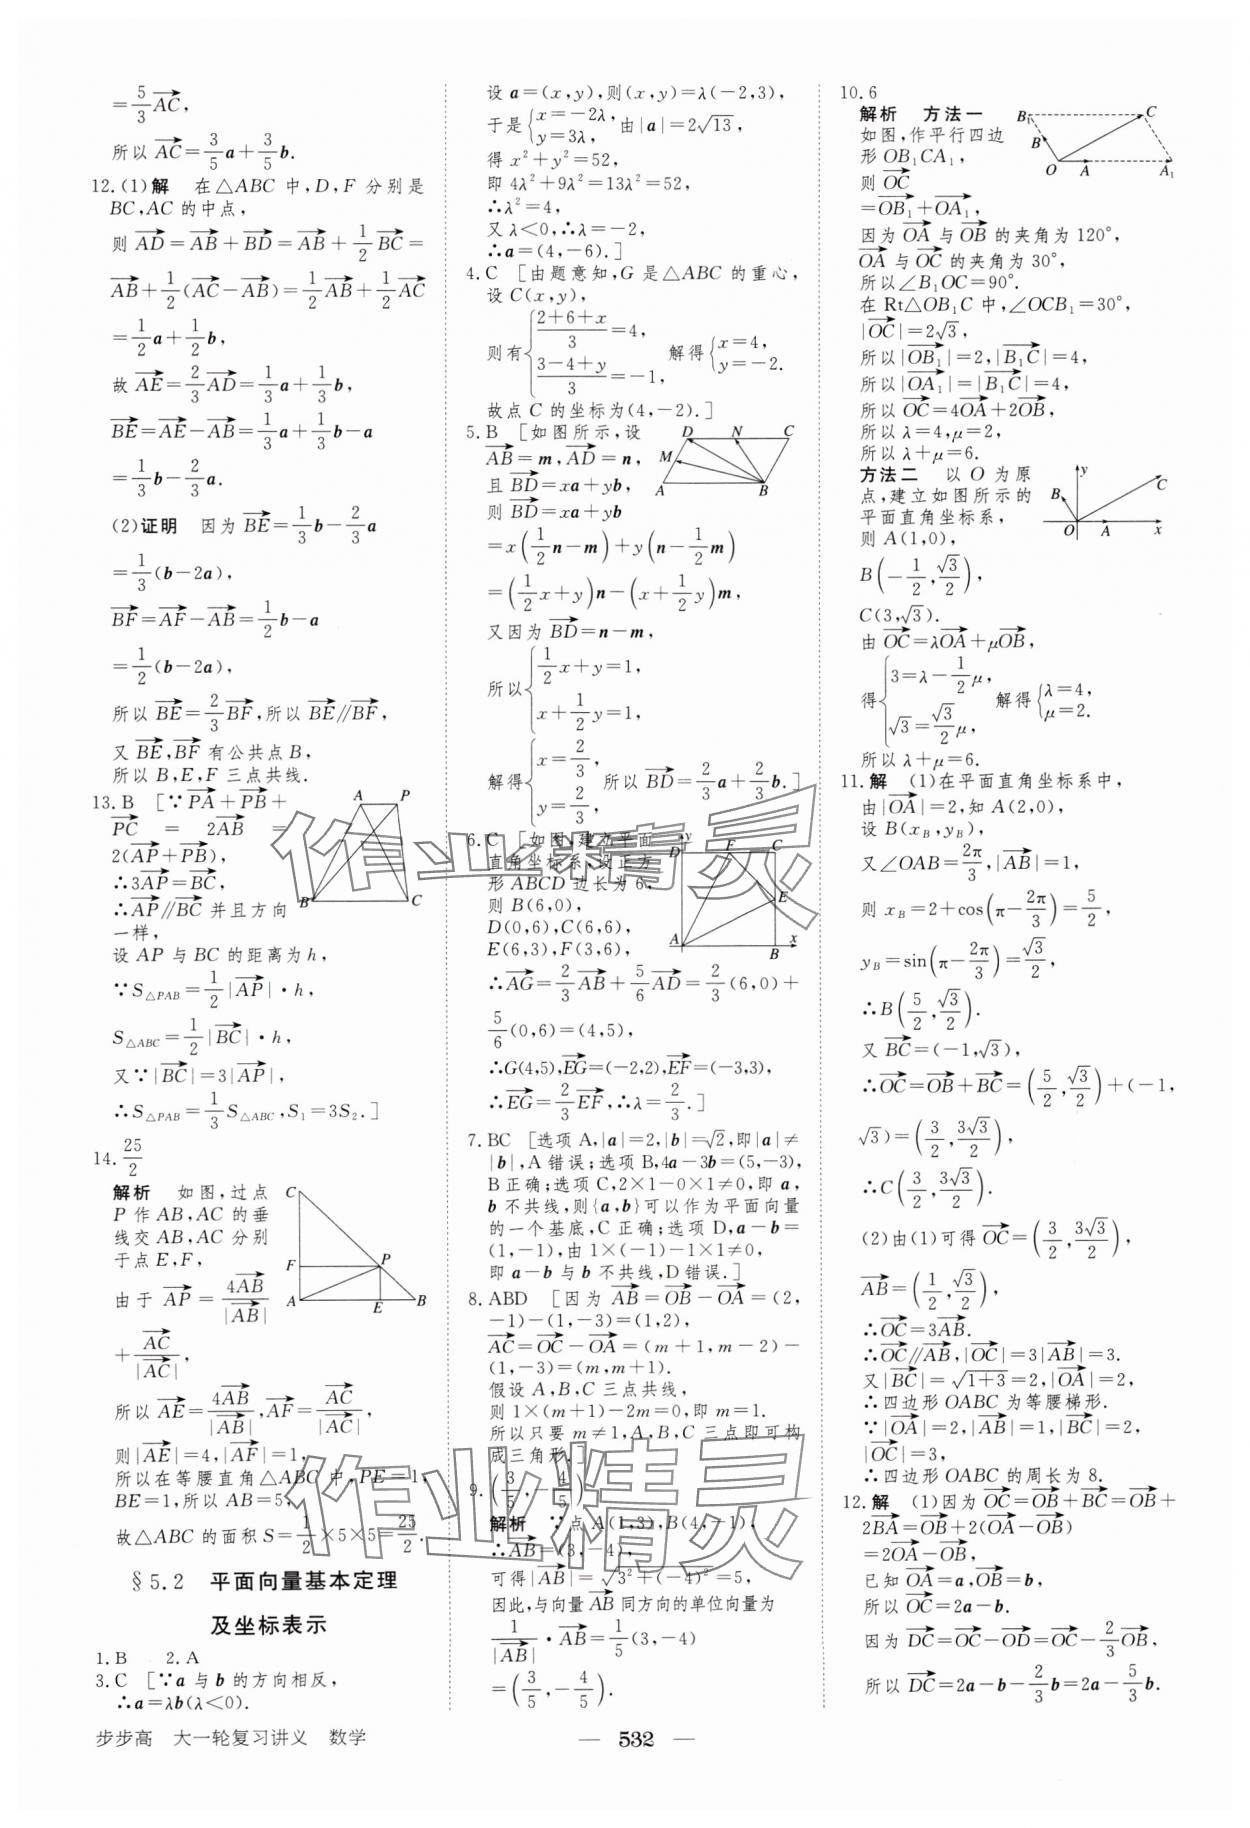 =5/3 AC→,
所以 AC→=3/5 a+3/5 b.
12.(1)解 在△ABC 中,D,F 分别是
BC,AC 的中点,
则 AD→=AB→+BD→=AB→+1/2 BC→=
AB→+1/2(AC→-AB→)=1/2 AB→+1/2 AC→
=1/2 a+1/2 b,
故 AE→=2/3 AD→=1/3 a+1/3 b,
BE→=AE→-AB→=1/3 a+1/3 b-a
=1/3 b-2/3 a.
(2)证明 因为 BE→=1/3 b-2/3 a
=1/3(b-2a),
BF→=AF→-AB→=1/2 b-a
=1/2(b-2a),
所以 BE→=2/3 BF→,所以 BE→∥BF→,
又 BE→,BF→ 有公共点 B,
所以 B,E,F 三点共线.
13.B [∵PA→+PB→+
PC→ = 2AB→ =
2(AP→+PB→),
∴3AP→=BC→,
∴AP→∥BC→ 并且方向
一样,
设 AP 与 BC 的距离为 h,
∵S△PAB=1/2|AP→|·h,
S△ABC=1/2|BC→|·h,
又∵|BC→|=3|AP→|,
∴S△PAB=1/3 S△ABC,S₁=3S₂.]
A P B C
14. 25/2
解析 如图,过点
P 作 AB,AC 的垂
线交 AB,AC 分别
于点 E,F,
由于 AP→=4AB→/|AB→|
+AC→/|AC→|,
C F P A E B
所以 AE→=4AB→/|AB→|,AF→=AC→/|AC→|,
则|AE→|=4,|AF→|=1,
所以在等腰直角△ABC 中,PE=1,
BE=1,所以 AB=5,
故△ABC 的面积 S=1/2×5×5=25/2.
§5.2 平面向量基本定理
及坐标表示
1.B 2.A
3.C [∵a 与 b 的方向相反,
∴a=λb(λ<0).
设 a=(x,y),则(x,y)=λ(-2,3),
于是{x=-2λ, y=3λ, 由|a|=2√13,
得 x²+y²=52,
即 4λ²+9λ²=13λ²=52,
∴λ²=4,
又 λ<0,∴λ=-2,
∴a=(4,-6).]
4.C [由题意知,G 是△ABC 的重心,
设 C(x,y),
则有{(2+6+x)/3=4, (3-4+y)/3=-1, 解得{x=4, y=-2.
故点 C 的坐标为(4,-2).]
5.B [如图所示,设
AB→=m,AD→=n,
且 BD→=xa+yb,
则 BD→=xa+yb
D N C M A B
=x(1/2 n-m)+y(n-1/2 m)
=(1/2 x+y)n-(x+1/2 y)m,
又因为 BD→=n-m,
所以{1/2 x+y=1, x+1/2 y=1,
解得{x=2/3, y=2/3, 所以 BD→=2/3 a+2/3 b.]
6.C [如图,建立平面
直角坐标系,设正方
形 ABCD 边长为 6,
则 B(6,0),
D(0,6),C(6,6),
E(6,3),F(3,6),
y D F C E A B x
∴AG→=2/3 AB→+5/6 AD→=2/3(6,0)+
5/6(0,6)=(4,5),
∴G(4,5),EG→=(-2,2),EF→=(-3,3),
∴EG→=2/3 EF→,∴λ=2/3.]
7.BC [选项 A,|a|=2,|b|=√2,即|a|≠
|b|,A 错误;选项 B,4a-3b=(5,-3),
B 正确;选项 C,2×1-0×1≠0,即 a,
b 不共线,则{a,b}可以作为平面向量
的一个基底,C 正确;选项 D,a-b=
(1,-1),由 1×(-1)-1×1≠0,
即 a-b 与 b 不共线,D 错误.]
8.ABD [因为 AB→=OB→-OA→=(2,
-1)-(1,-3)=(1,2),
AC→=OC→-OA→=(m+1,m-2)-
(1,-3)=(m,m+1).
假设 A,B,C 三点共线,
则 1×(m+1)-2m=0,即 m=1.
所以只要 m≠1,A,B,C 三点即可构
成三角形.]
9.(3/5,-4/5)
解析 ∵点 A(1,3),B(4,-1),
∴AB→=(3,-4),
可得|AB→|=√(3²+(-4)²)=5,
因此,与向量 AB→ 同方向的单位向量为
1/|AB→|·AB→=1/5(3,-4)
=(3/5,-4/5).
10.6
解析 方法一
如图,作平行四边
形 OB₁CA₁,
B₁ C B O A A₁
则 OC→
=OB₁→+OA₁→,
因为 OA→ 与 OB→ 的夹角为 120°,
OA→ 与 OC→ 的夹角为 30°,
所以∠B₁OC=90°.
在 Rt△OB₁C 中,∠OCB₁=30°,
|OC→|=2√3,
所以|OB₁→|=2,|B₁C→|=4,
所以|OA₁→|=|B₁C→|=4,
所以 OC→=4OA→+2OB→,
所以 λ=4,μ=2,
所以 λ+μ=6.
方法二 以 O 为原
点,建立如图所示的
平面直角坐标系,
y B C O A x
则 A(1,0),
B(-1/2,√3/2),
C(3,√3).
由 OC→=λOA→+μOB→,
得{3=λ-1/2 μ, √3=√3/2 μ, 解得{λ=4, μ=2.
所以 λ+μ=6.
11.解 (1)在平面直角坐标系中,
由|OA→|=2,知 A(2,0),
设 B(xB,yB),
又∠OAB=2π/3,|AB→|=1,
则 xB=2+cos(π-2π/3)=5/2,
yB=sin(π-2π/3)=√3/2,
∴B(5/2,√3/2).
又 BC→=(-1,√3),
∴OC→=OB→+BC→=(5/2,√3/2)+(-1,
√3)=(3/2,3√3/2),
∴C(3/2,3√3/2).
(2)由(1)可得 OC→=(3/2,3√3/2),
AB→=(1/2,√3/2),
∴OC→=3AB→.
∴OC→∥AB→,|OC→|=3|AB→|=3.
又|BC→|=√(1+3)=2,|OA→|=2,
∴四边形 OABC 为等腰梯形.
∵|OA→|=2,|AB→|=1,|BC→|=2,
|OC→|=3,
∴四边形 OABC 的周长为 8.
12.解 (1)因为 OC→=OB→+BC→=OB→+
2BA→=OB→+2(OA→-OB→)
=2OA→-OB→,
已知 OA→=a,OB→=b,
所以 OC→=2a-b.
因为 DC→=OC→-OD→=OC→-2/3 OB→,
所以 DC→=2a-b-2/3 b=2a-5/3 b.
作业精灵
作业精灵
步步高 大一轮复习讲义 数学
— 532 —